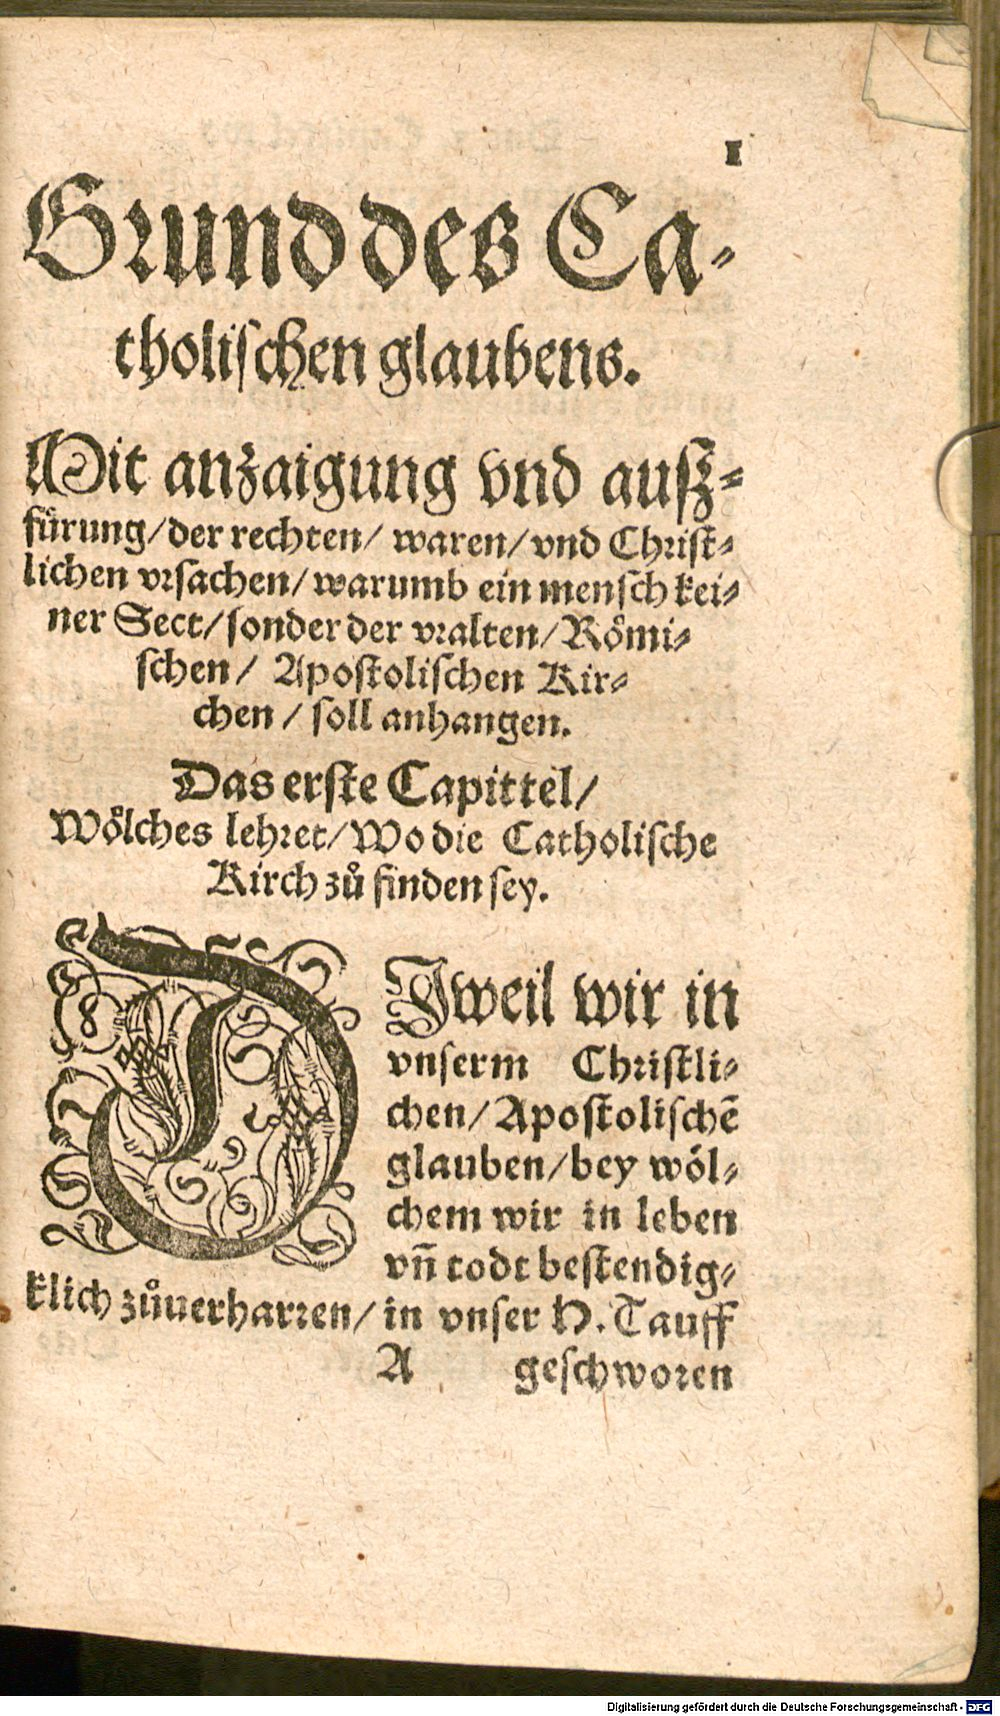 I
Grund des Ca-
tholischen glaubens.
Mit anzaigung vnd ausz-
fürung/ der rechten/ waren/ vnd Christ-
lichen vrsachen/ warumb ein mensch kei-
ner Sect/ sonder der vralten/ Römi-
schen/ Apostolischen Kir-
chen/ soll anhangen.
Das erste Capittel/
Woͤlches lehret/ Wo die Catholische
Kirch zů finden sey.
DJweil wir in
vnserm Christli-
chen/ Apostolischẽ
glauben/ bey woͤl-
chem wir in leben
vñ todt bestendig-
klich zůuerharren/ in vnser H. Tauff
A geschworen
Digitalisierung gefördert durch die Deutsche Forschungsgemeinschaft - DFG